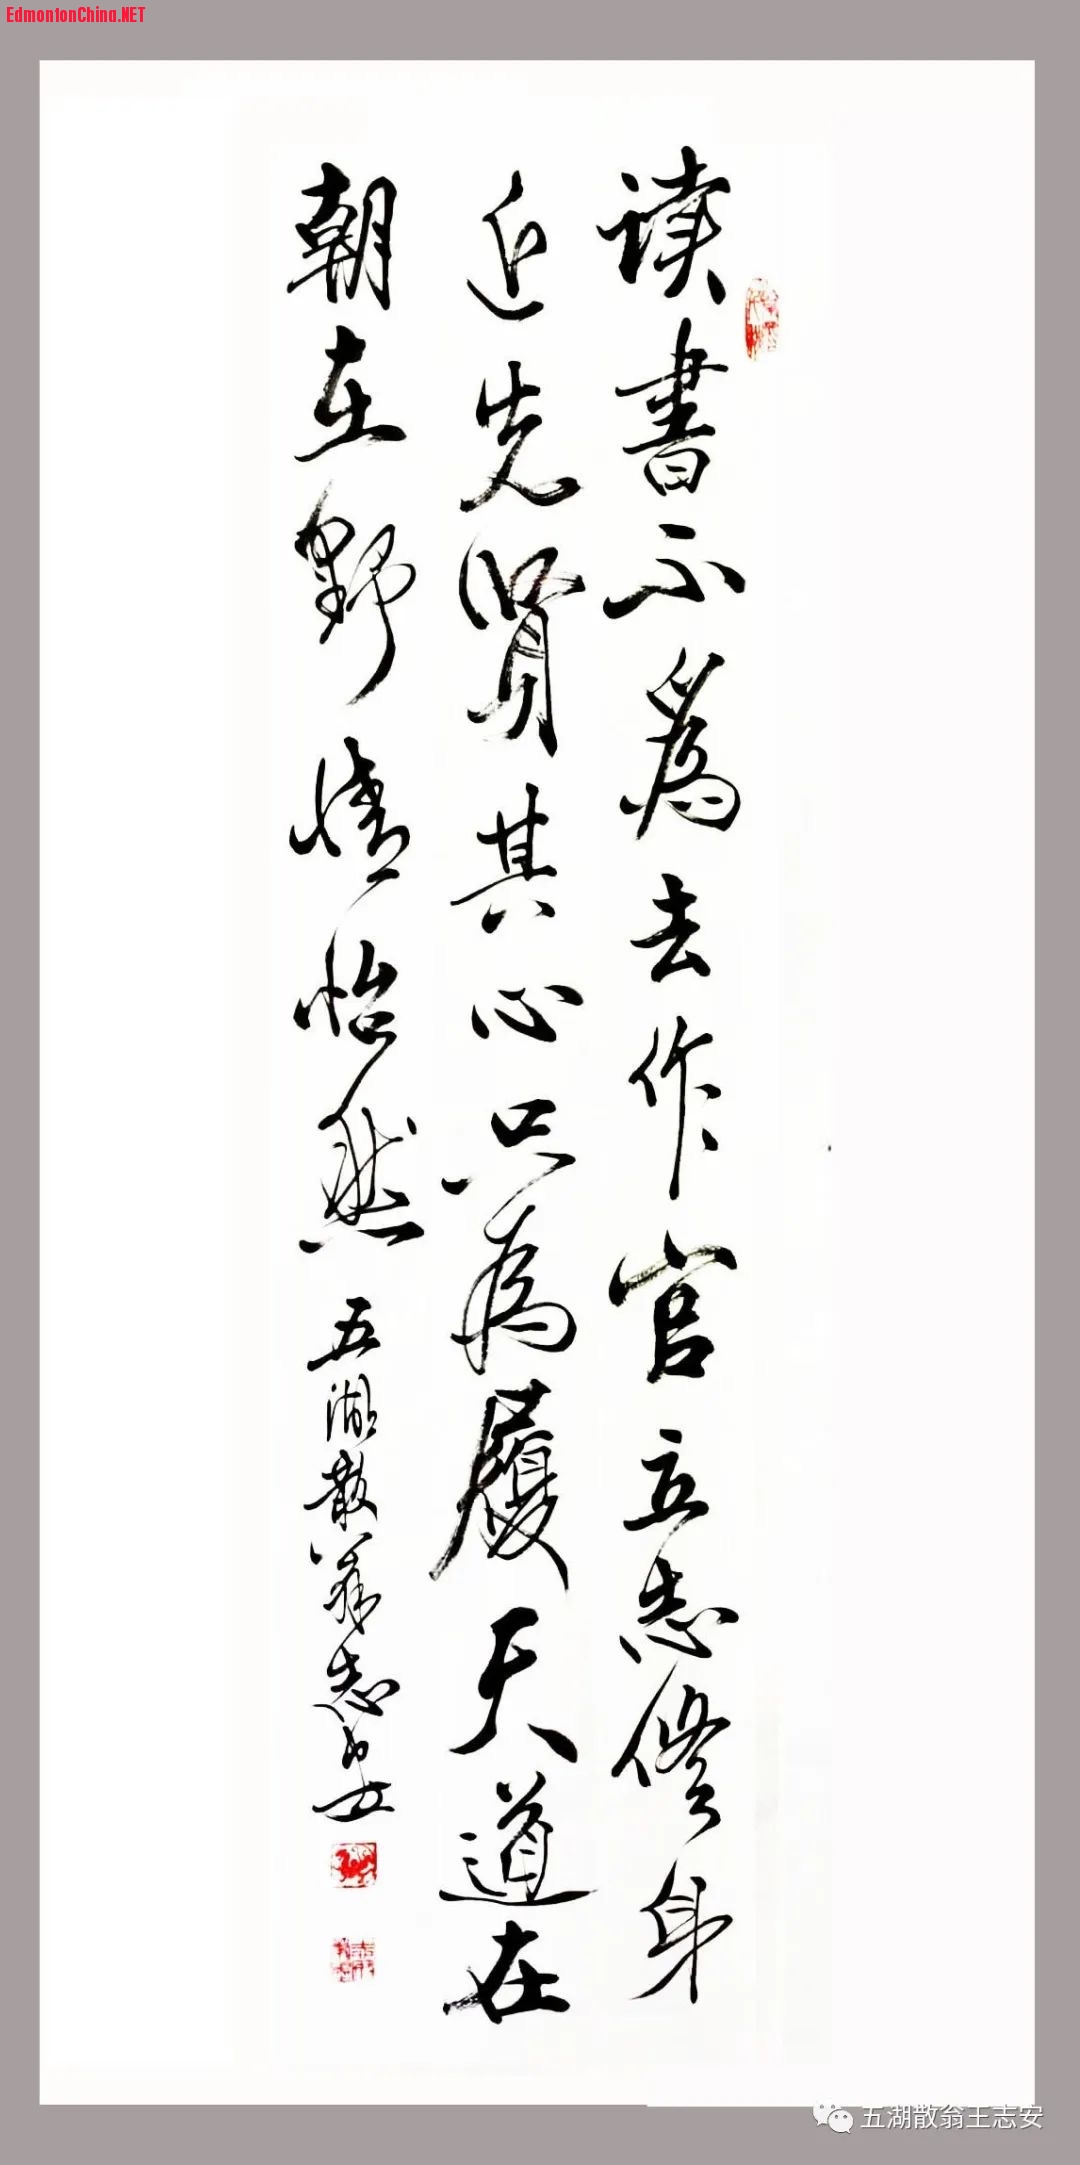 EdmontonChina.NET
读書不為去作官立志修身
近先贤其心只為履天道在
朝在野情怡然
五湖散翁志安書
五湖散翁王志安